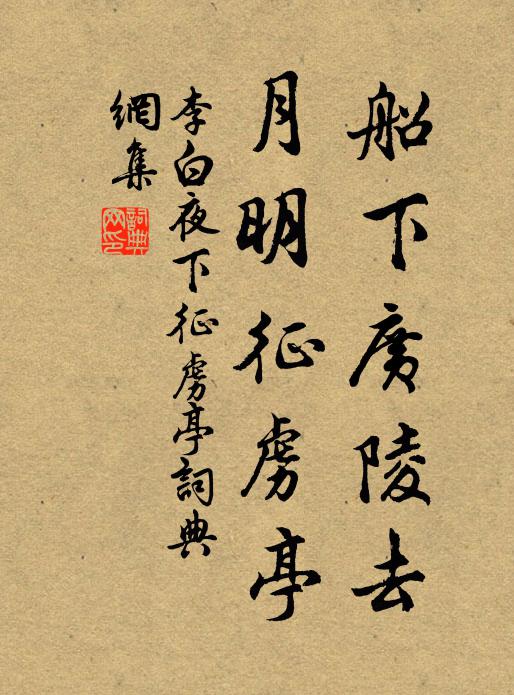 船下廣陵去
月明征虜亭
李白夜下征虜亭詞典
網集
詞典
网印